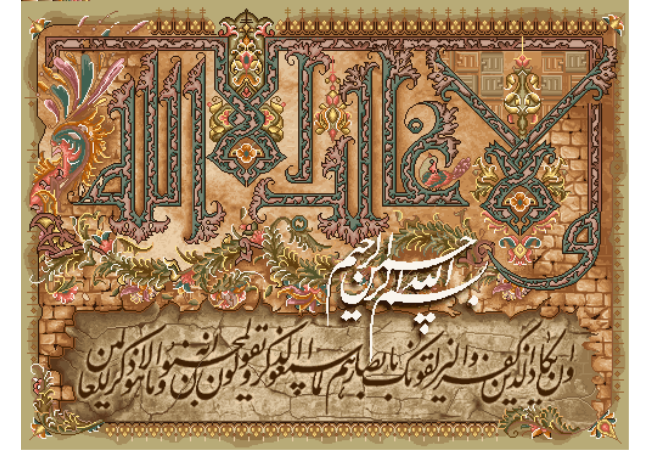 ولا غالب الا الله
بسم الله الرحمن الرحيم
وان يكاد الذين كفروا ليزلقونك بابصارهم لما سمعوا الذكر ويقولون انه لمجنون وما هو الا ذكر للعالمين